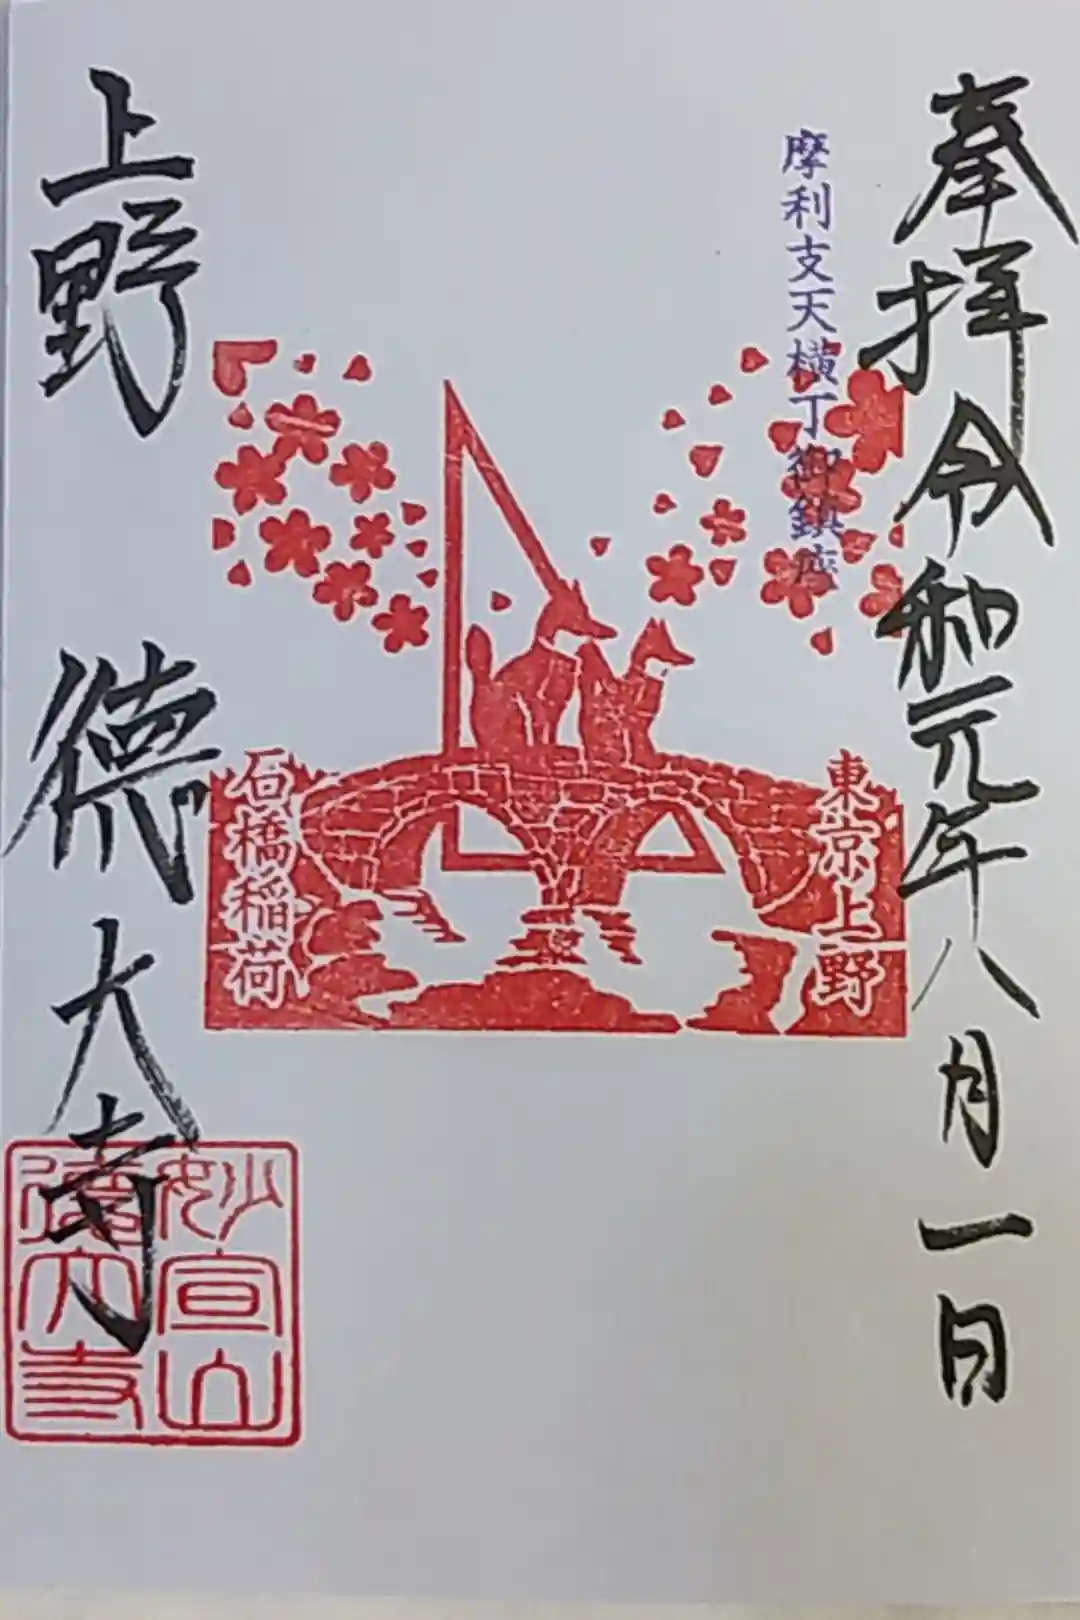 奉拝令和元年八月一日
摩利支天横丁御鎮座
東京上野
石橋稲荷
上野 徳大寺
妙宣山
徳大寺